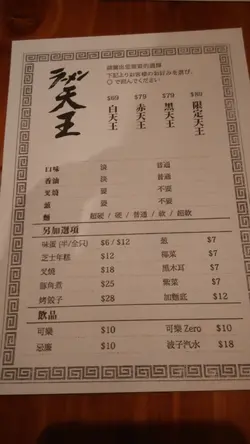 ラーメン
天王
請圈出您要要的選擇
下記よりお客様のお好みを選び、
○で囲んでください
$69 $79 $79 $89
白天王 赤天王 黑天王 限定天王
口味 濃 普通
香油 淡 普通
叉燒 要 不要
蔥 要 不要
麵 超硬 / 硬 / 普通 / 軟 / 超軟
另加選項
味蛋 (半/全只) $6 / $12 蔥 $7
芝士年糕 $12 $7
叉燒 $18 黑木耳 $7
豚角煮 $25 紫菜 $7
烤餃子 $28 加麵底 $12
飲品
可樂 $10 可樂 Zero $10
忌廉 $10 波子汽水 $18